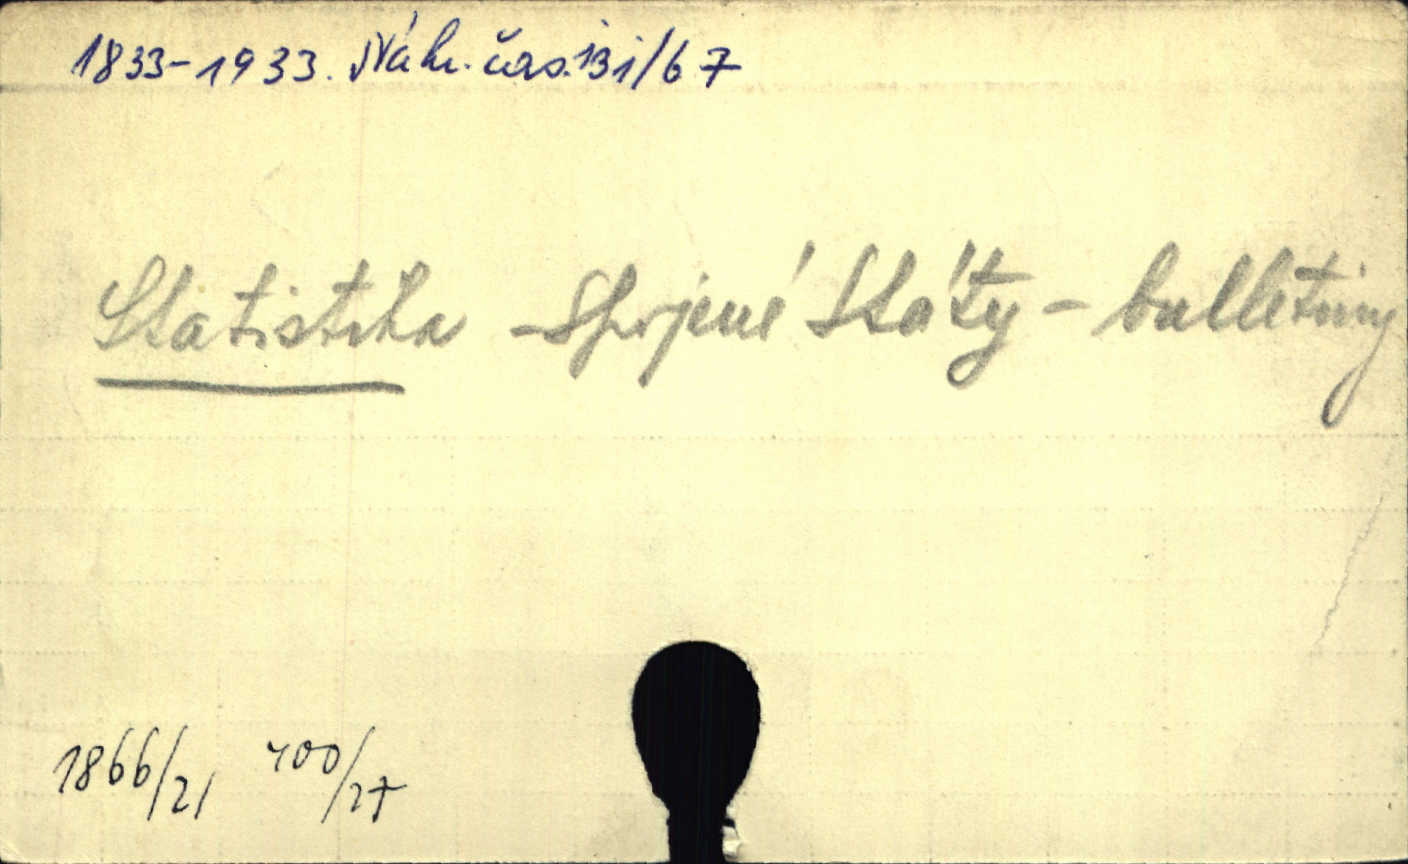 1833-1933. Náhr. čas. 131/67
Statistika - Spojené Státy - bulletiny
1866/21 400/27